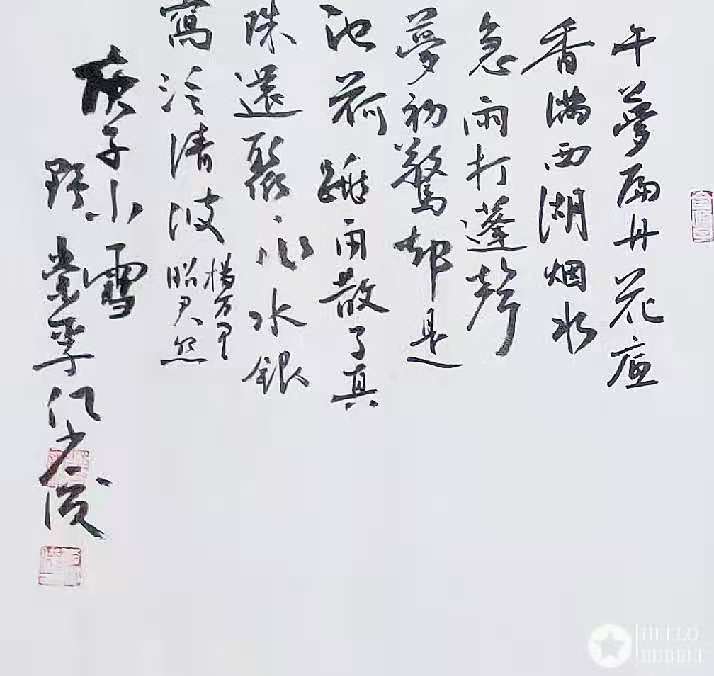 午夢扁舟花底
香滿西湖烟水
急雨打蓬聲
夢初驚却是
池荷跳雨散了真
珠還聚作水銀
窩泻清波
楊万里
昭君怨
庚子小雪
HELLO